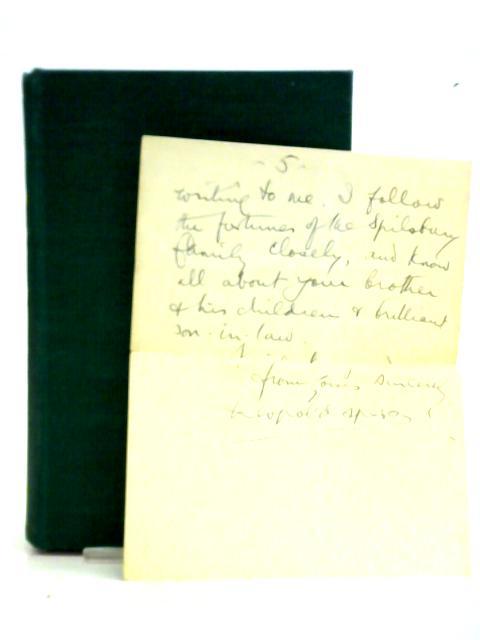 - 5 -
writing to me. I follow
the fortunes of the Spilsbury
family closely, and know
all about your brother
& his children & brilliant
son-in-law.
from yours sincerely